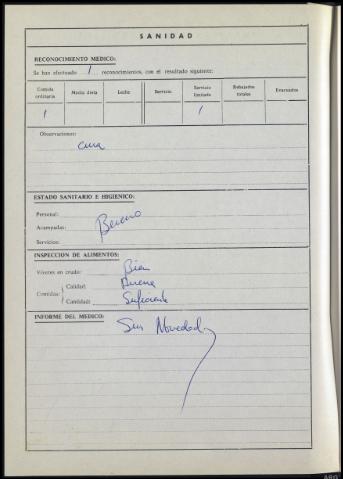 SANIDAD
RECONOCIMIENTO MEDICO:
Se han efectuado 1 reconocimientos, con el resultado siguiente:
Comida ordinaria Media dieta Leche Servicio Servicio limitado Rebajados totales Evacuados
1 1
Observaciones:
cura
ESTADO SANITARIO E HIGIENICO:
Personal:
Acampadas: Bueno
Servicios:
INSPECCION DE ALIMENTOS:
Víveres en crudo: Bien
Comidas: Calidad: Buena
Cantidad: Suficiente
INFORME DEL MEDICO:
Sin Novedad